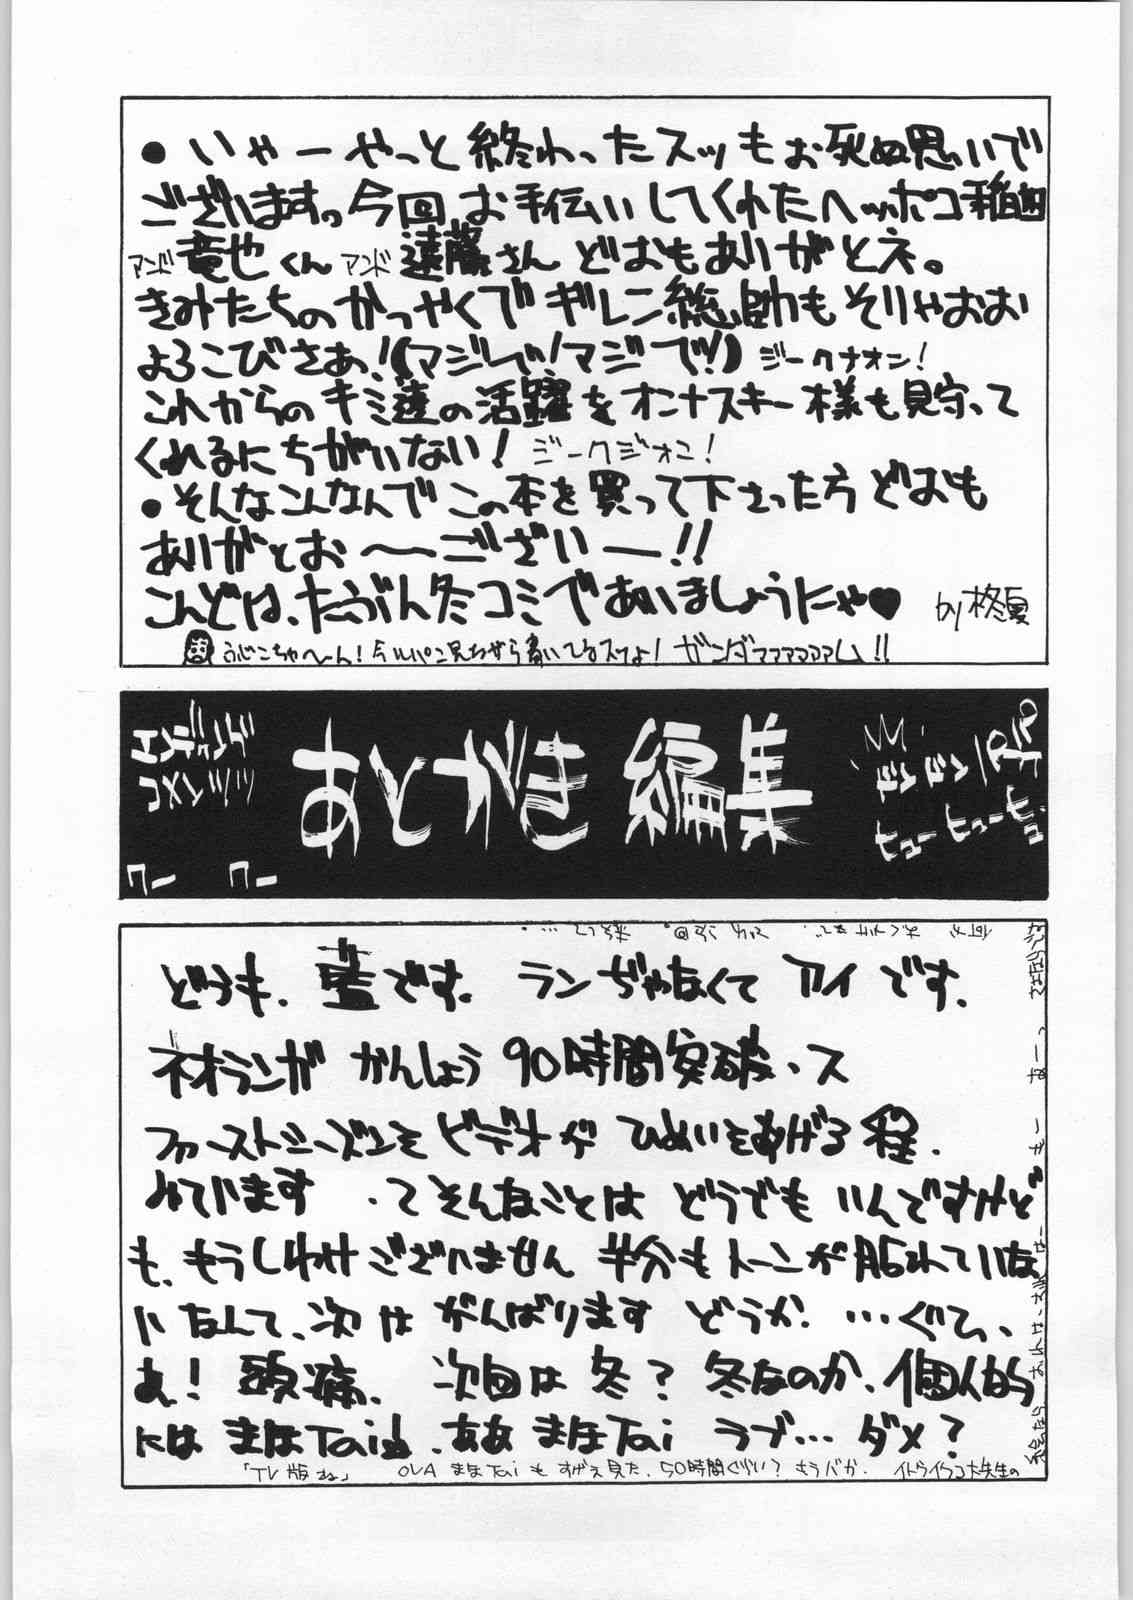 ●いやーやっと終わったスッもお死ぬ思いで
ございますっ今回お手伝いしてくれたヘッポコ稲田
アンド竜也くんアンド遠藤さんどおもありがとネ。
きみたちのかつやくでギレン総帥もそりゃおお
よろこびさぁ!(マジで!マジで!)ジークナオン!
これからのキミ達の活躍をオンナスキー様も見守って
くれるにちがいない!ジークジオニ!
●そんなこんなんでこの本を買って下さった方どおも
ありがとお〜ございー!!
こんどは、たぶん冬コミであいましょうにゃ♥ by柊夏
ふじこちゃへ〜ん!今ルパン見ながら書いてるスよ!ガンダマァァァァム!!
エンディング
コメンツツツ
ワー ワー
あとがき編集
ドンドンパフパフ
ヒューヒューヒュ
どうも、藍です。ランぢゃなくてアイです、
ネオランガかんしょう90時間突破、ス
ファーストシーズンをビデオがひめいをあげる程、
みています、てそんなことはどうでもいんですけど
も、もうしわけございません半分もトーンが貼れていな
いなんて、次はがんばりますどうか!…ぐてっ、
あ!頭痛、次回は冬?冬なのか、個人的
にはまほTai!、ああまほTaiラブ…ダメ?
「TV版ね」OVAまほTaiもすげぇ見た、50時間ぐらい?もうバカ、イトウイクコ大先生の